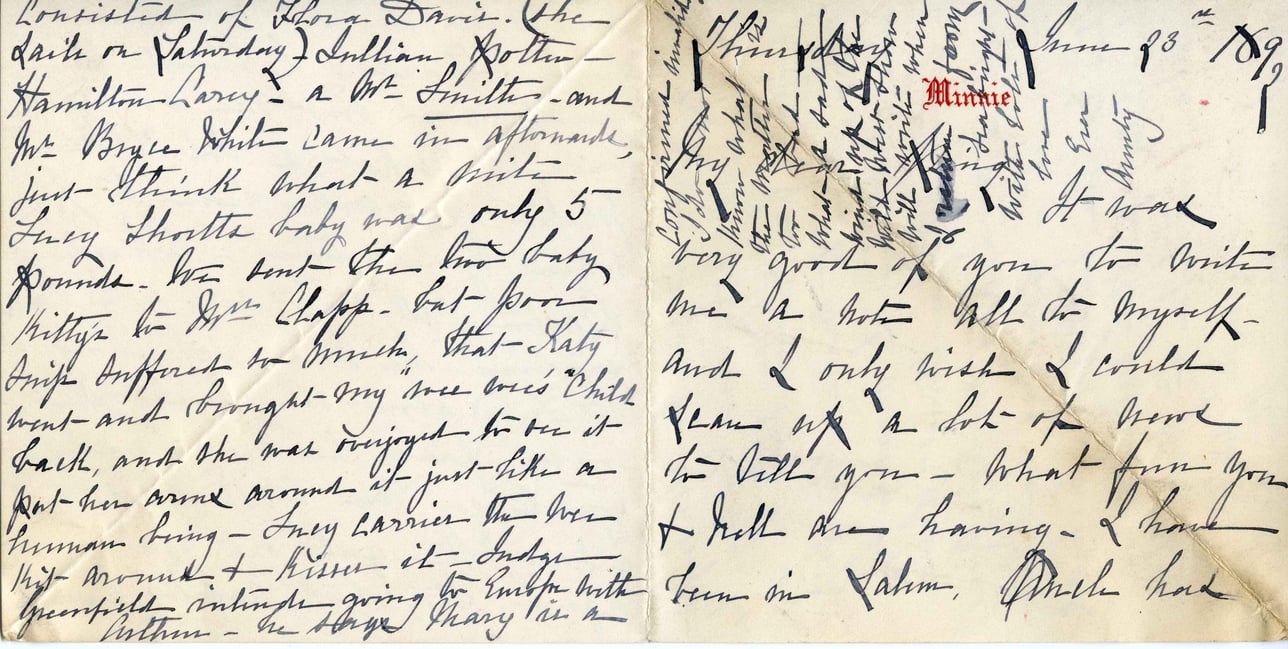 Thursday June 23rd 1892
Minnie
My dear
It was
very good of you to write
me a note all to myself-
and I only wish I could
scare up a lot of news
to tell you - What fun you
& Nell are having - I have
been in Salem. Uncle has
Consisted of Flora Davis. (She
sails on Saturday) - Lillian Potter -
Hamilton Carey - a Mr Smith - and
Mr Bryce White came in afterwards,
just think what a mite
Lucy Shortts baby was only 5
pounds - We sent the two baby
Kitty's to Mrs Clapp - but poor
snip suffered so much, that Katy
went and brought my "wee wee's" Child
back, and she was overjoyed to see it
put her arms around it just like a
human being - Lucy carries the wee
Kit around & Kisses it - Judge
Greenfield intends going to Europe with
Arthur - he says Mary is a
Confirmed invalid
I do not
know what
the matter
to
What a sad
wind up of the
will write when
I return from
Seabright -
with lots of
love
Ever
Aunty